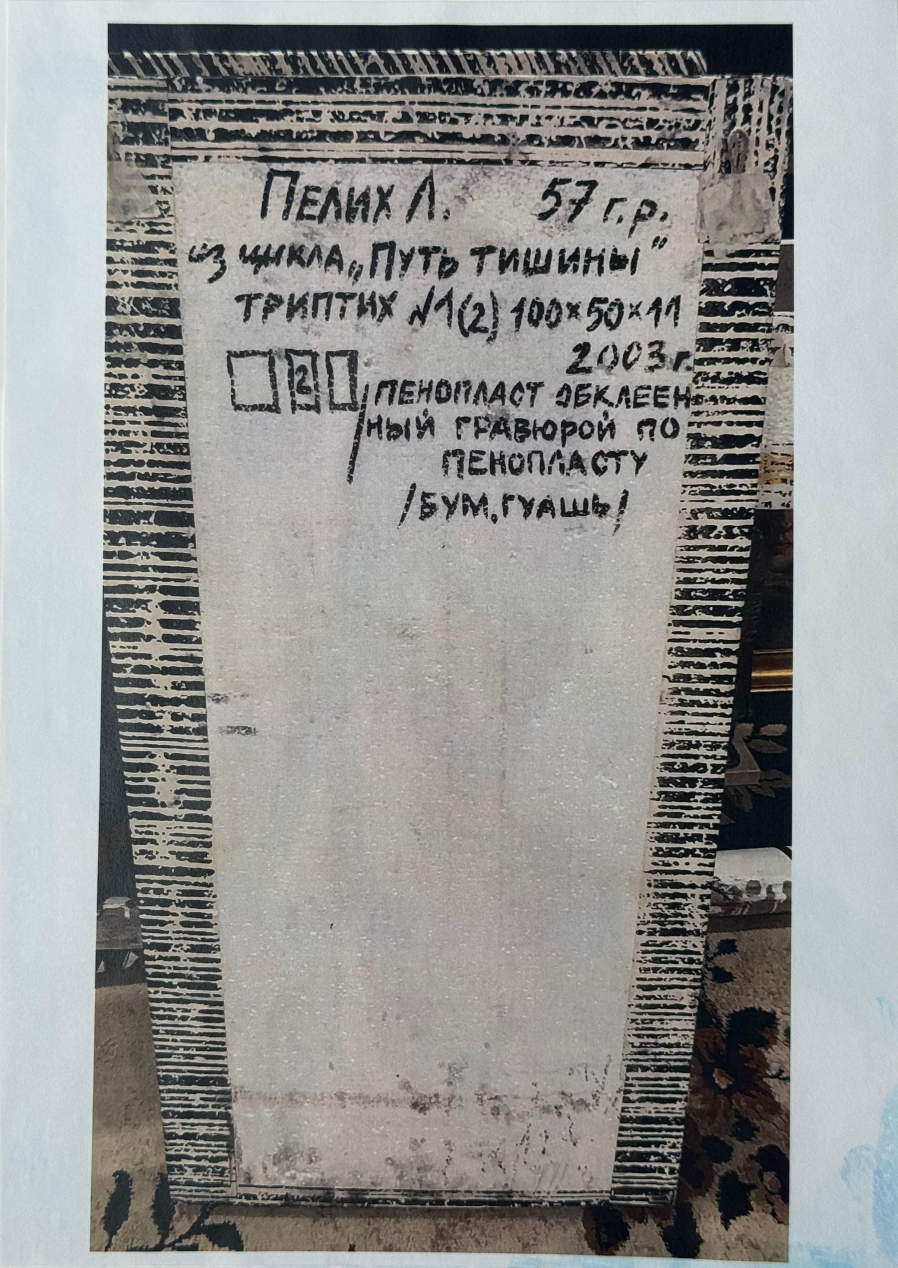 ПЕЛИХ Л. 57 г.р.
из цикла „ПУТЬ ТИШИНЫ"
ТРИПТИХ №1(2) 100×50×11
2003 г.
2 /ПЕНОПЛАСТ ОБКЛЕЕН-
НЫЙ ГРАВЮРОЙ ПО
ПЕНОПЛАСТУ
/БУМ, ГУАШЬ/